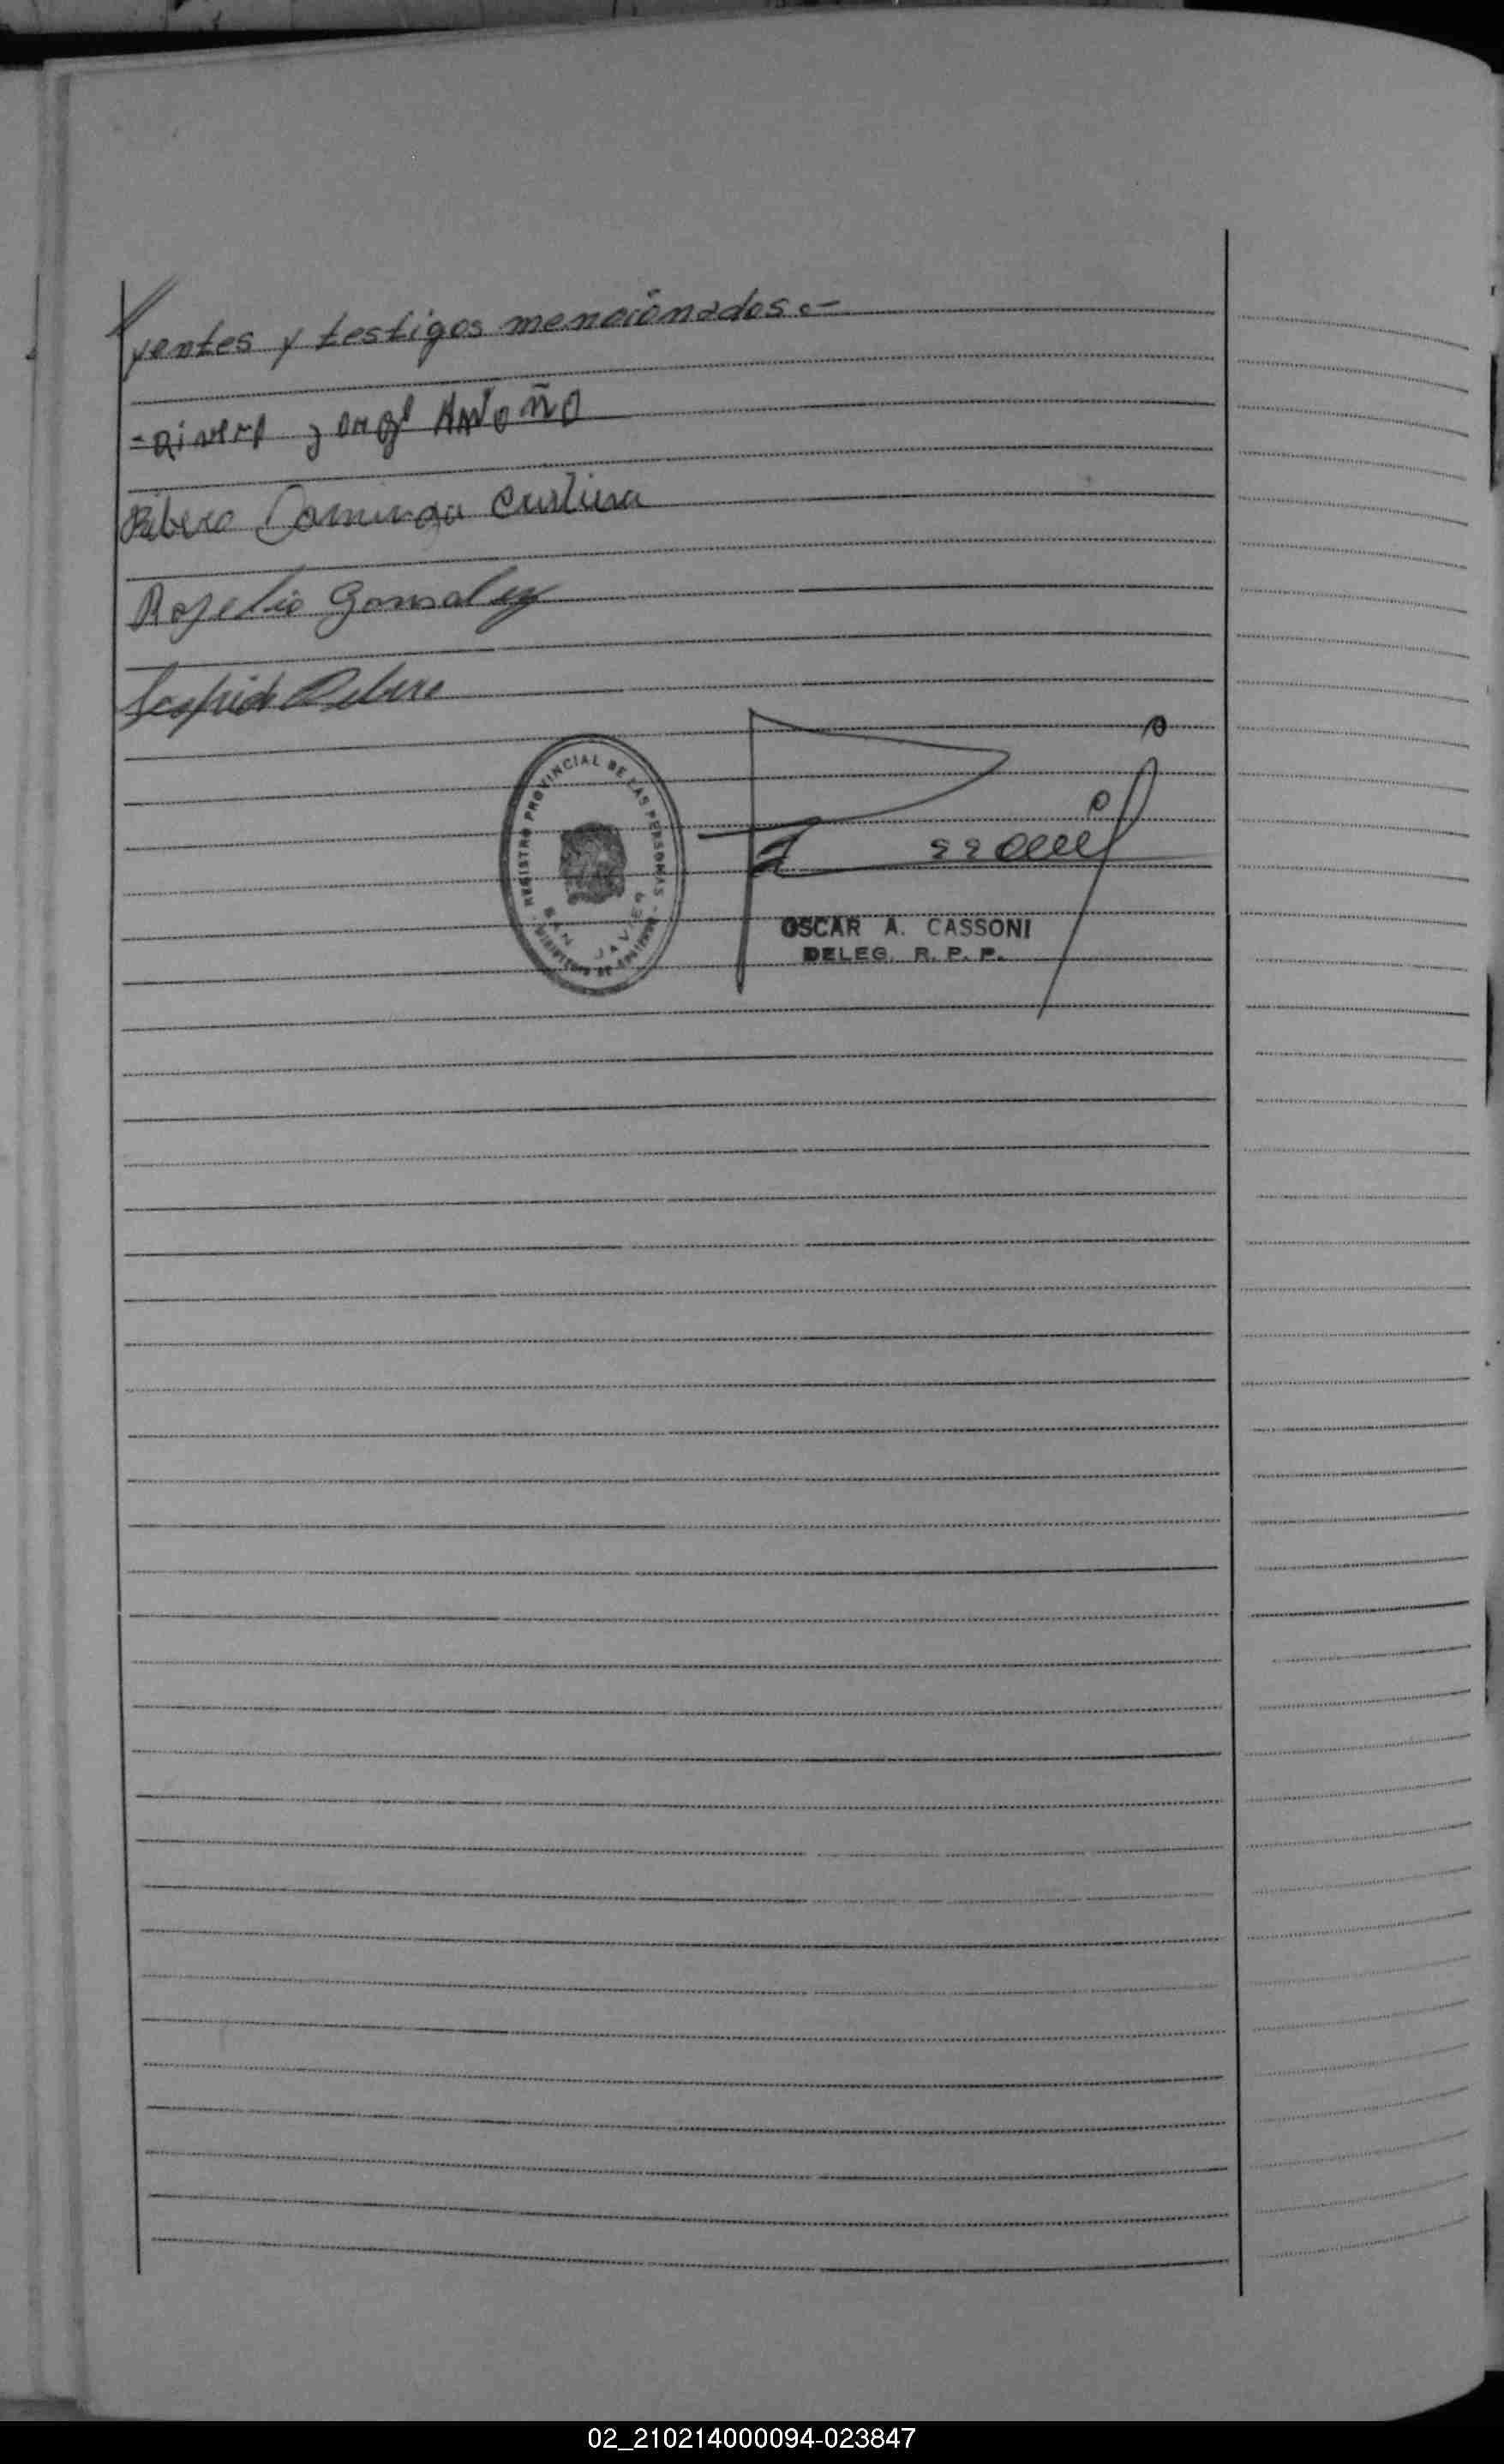 yentes y testigos mencionados.-
Antoño
Ribero Dominga Cristina
Rogelio Gonzalez
Ribero
REGISTRO PROVINCIAL DE LAS PERSONAS
SAN JAVIER
OSCAR A. CASSONI
DELEG. R. P. P.
02_210214000094-023847